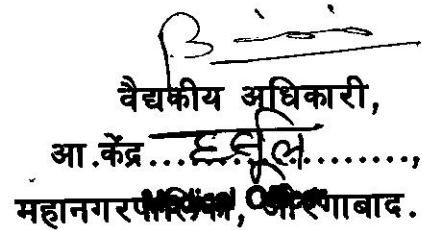 वैद्यकीय अधिकारी,
आ.केंद्र....हर्सुल..........,
महानगरपालिका, औरंगाबाद.
Medical Officer